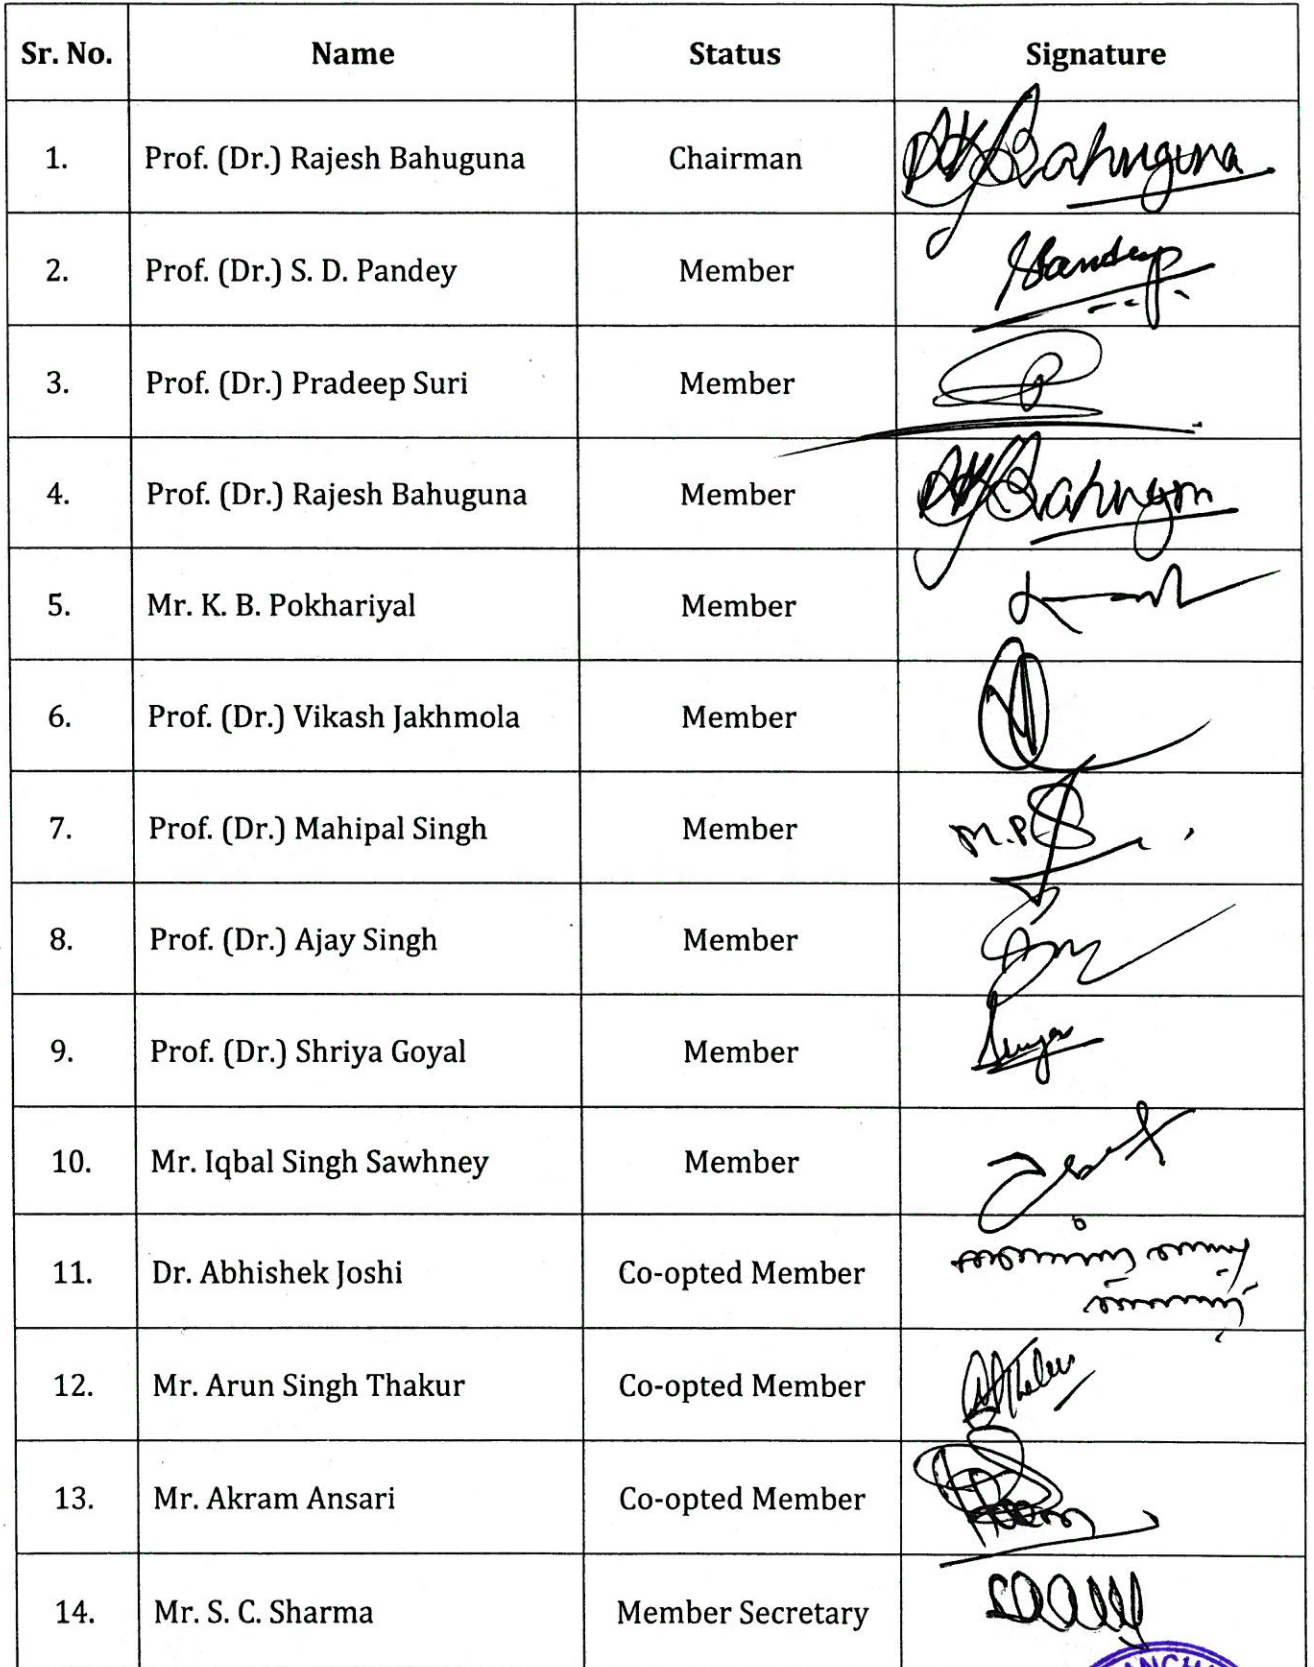 Sr. No. Name Status Signature
1. Prof. (Dr.) Rajesh Bahuguna Chairman Bahuguna
2. Prof. (Dr.) S. D. Pandey Member
3. Prof. (Dr.) Pradeep Suri Member
4. Prof. (Dr.) Rajesh Bahuguna Member
5. Mr. K. B. Pokhariyal Member
6. Prof. (Dr.) Vikash Jakhmola Member
7. Prof. (Dr.) Mahipal Singh Member M.P
8. Prof. (Dr.) Ajay Singh Member
9. Prof. (Dr.) Shriya Goyal Member
10. Mr. Iqbal Singh Sawhney Member
11. Dr. Abhishek Joshi Co-opted Member
12. Mr. Arun Singh Thakur Co-opted Member
13. Mr. Akram Ansari Co-opted Member
14. Mr. S. C. Sharma Member Secretary